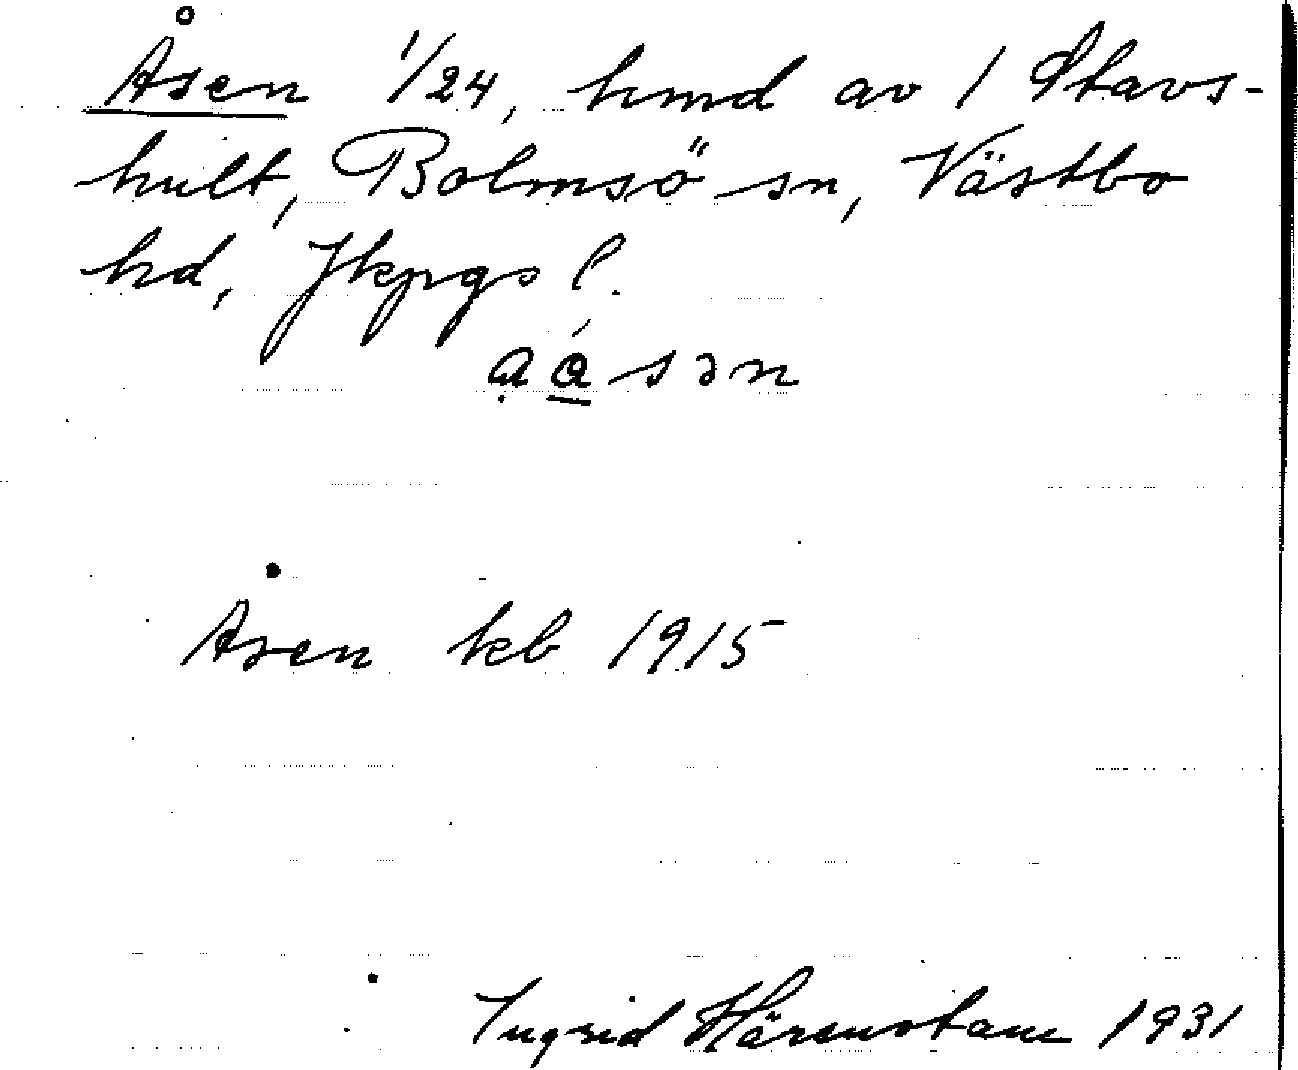 Åsen 1/24, hmd av 1 Stavs-
hult, Bolmsö sn, Västbo
hd, Jkpgs l.
Åsen kb 1915
Ingrid Härenstam 1931